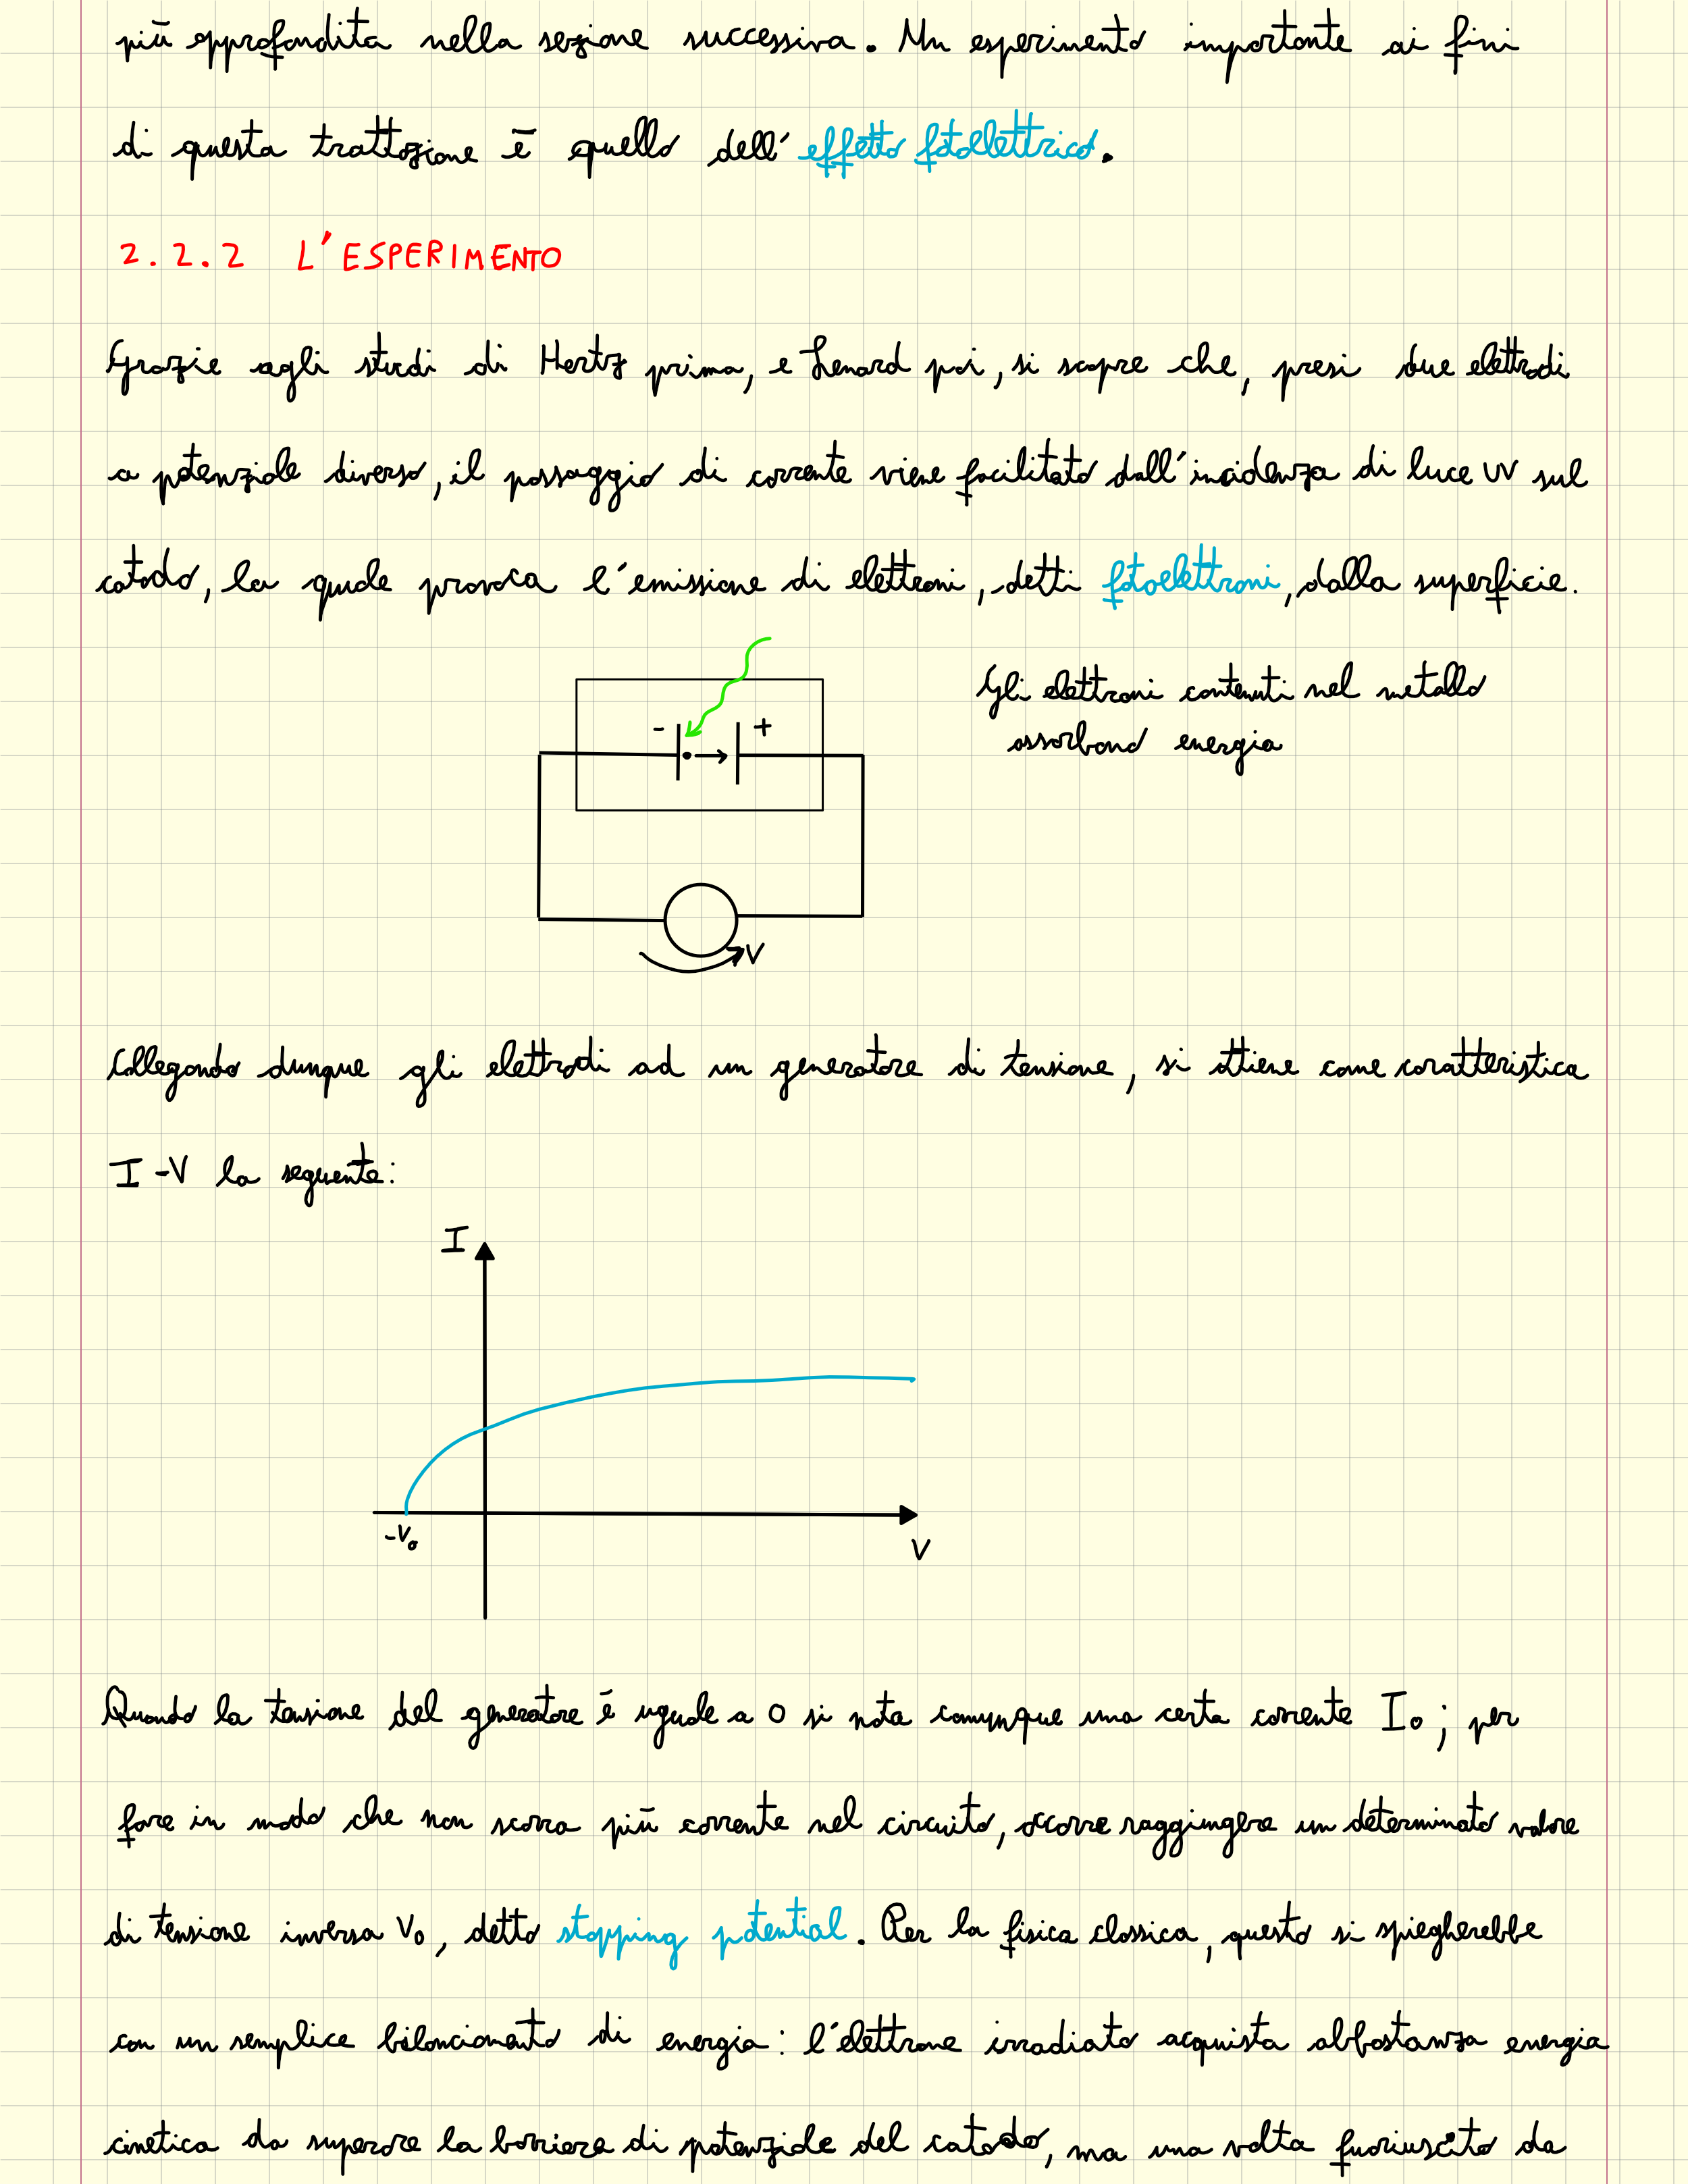 più approfondita nella sezione successiva. Un esperimento importante ai fini
di questa trattazione è quello dell'effetto fotoelettrico.
2.2.2 L'ESPERIMENTO
Grazie agli studi di Hertz prima, e Lenard poi, si scopre che, presi due elettrodi
a potenziale diverso, il passaggio di corrente viene facilitato dall'incidenza di luce UV sul
catodo, la quale provoca l'emissione di elettroni, detti fotoelettroni, dalla superficie.
Gli elettroni contenuti nel metallo
assorbono energia
- +
V
Collegando dunque gli elettrodi ad un generatore di tensione, si ottiene come caratteristica
I-V la seguente:
I
-V₀
V
Quando la tensione del generatore è uguale a 0 si nota comunque una certa corrente I₀; per
fare in modo che non scorra più corrente nel circuito, occorre raggiungere un determinato valore
di tensione inversa V₀, detto stopping potential. Per la fisica classica, questo si spiegherebbe
con un semplice bilanciamento di energia: l'elettrone irradiato acquista abbastanza energia
cinetica da superare la barriera di potenziale del catodo, ma una volta fuoriuscito da